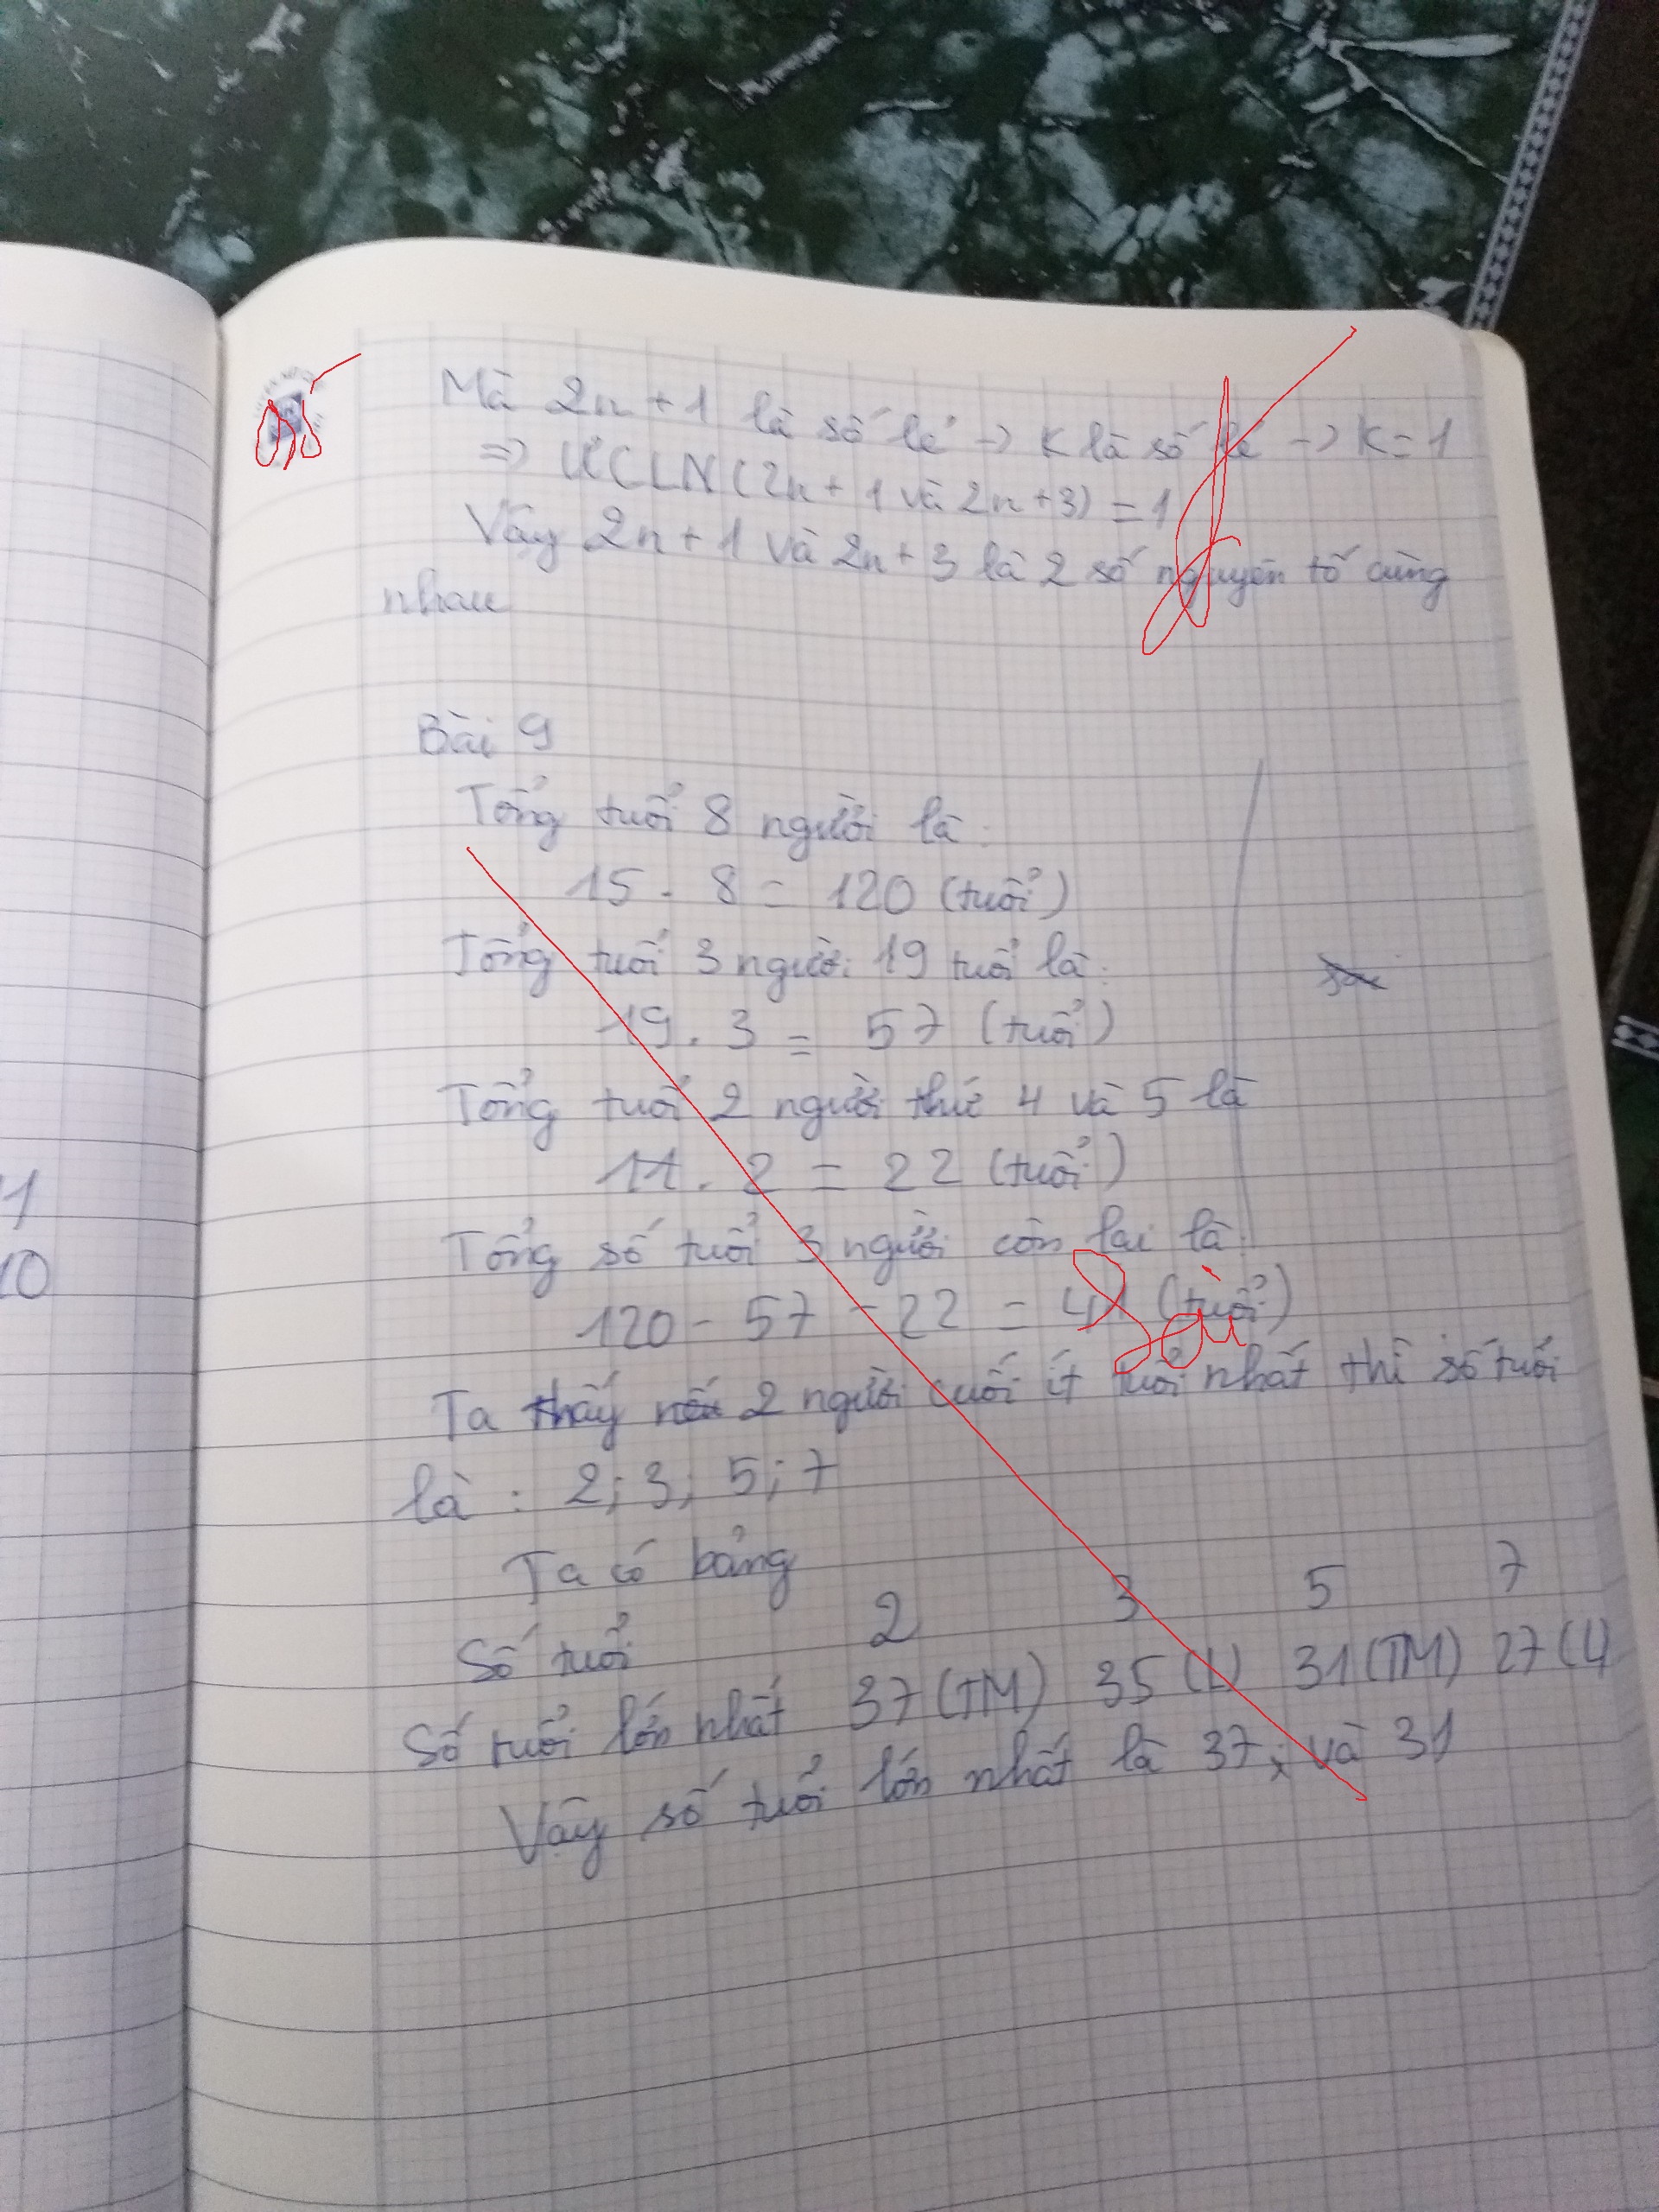 0,5
Mà 2n + 1 là số lẻ → K là số lẻ → K = 1
⇒ ƯCLN (2n + 1 và 2n + 3) = 1
Vậy 2n + 1 và 2n + 3 là 2 số nguyên tố cùng
nhau
Bài 9
Tổng tuổi 8 người là:
15 . 8 = 120 (tuổi)
Tổng tuổi 3 người 19 tuổi là:
19 . 3 = 57 (tuổi)
Tổng tuổi 2 người thứ 4 và 5 là
11 . 2 = 22 (tuổi)
Tổng số tuổi 3 người còn lại là:
120 - 57 - 22 = 41 (tuổi)
Sai
Ta thấy nếu 2 người cuối ít tuổi nhất thì số tuổi
là : 2; 3; 5; 7
Ta có bảng
Số tuổi 2 3 5 7
Số tuổi lớn nhất 37 (TM) 35 (L) 31 (TM) 27 (L)
Vậy số tuổi lớn nhất là 37; và 31
1
10